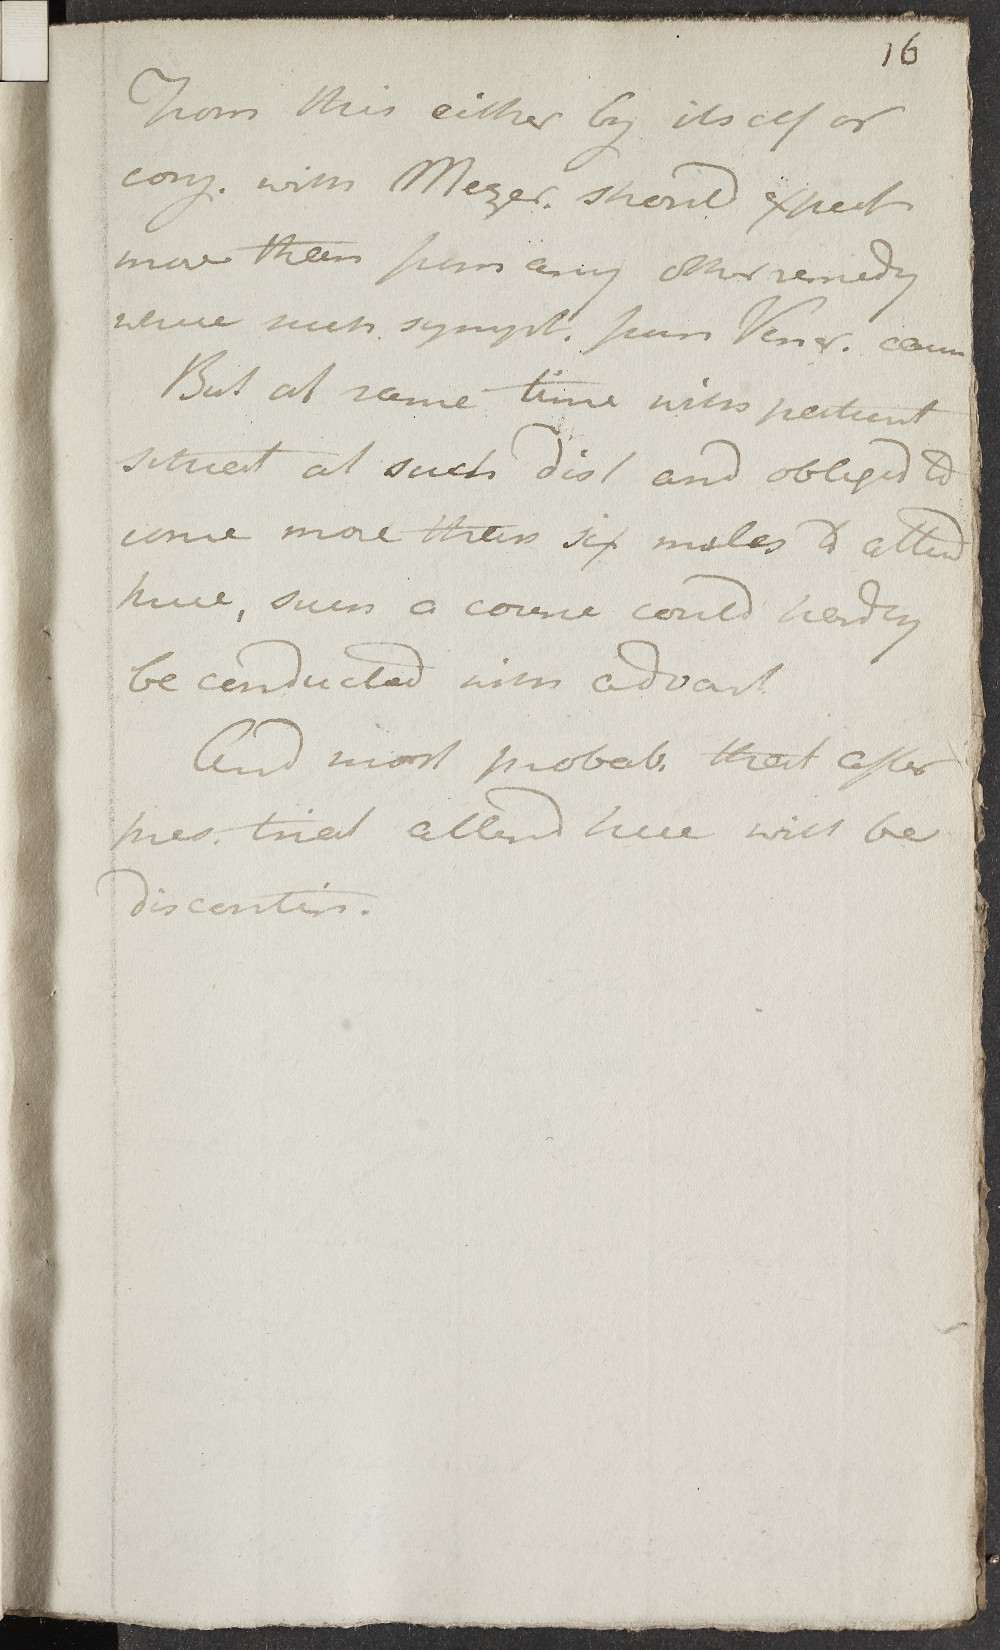 16
From this either by itself or
conj. with Mezer. should expect
more than from any other remedy
where such sympt. from Vener. caus
But at same time with patient
situat at such dist and obliged to
come more than six miles to attend
here, such a course could hardly
be conducted with advant
And most probab. that after
pres. trial attend here will be
discontin.